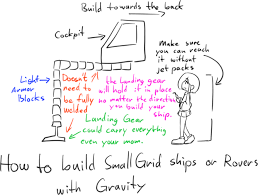 Build towards the back
Cockpit
Make sure
you can reach
it without
jet packs
Light
Armor
Blocks
Doesn't
need to
be fully
welded
the landing gear
will hold it in place
no matter the direction
you build your
ship.
Landing Gear
could carry everything
even your mom.
How to build Small Grid ships or Rovers
with Gravity